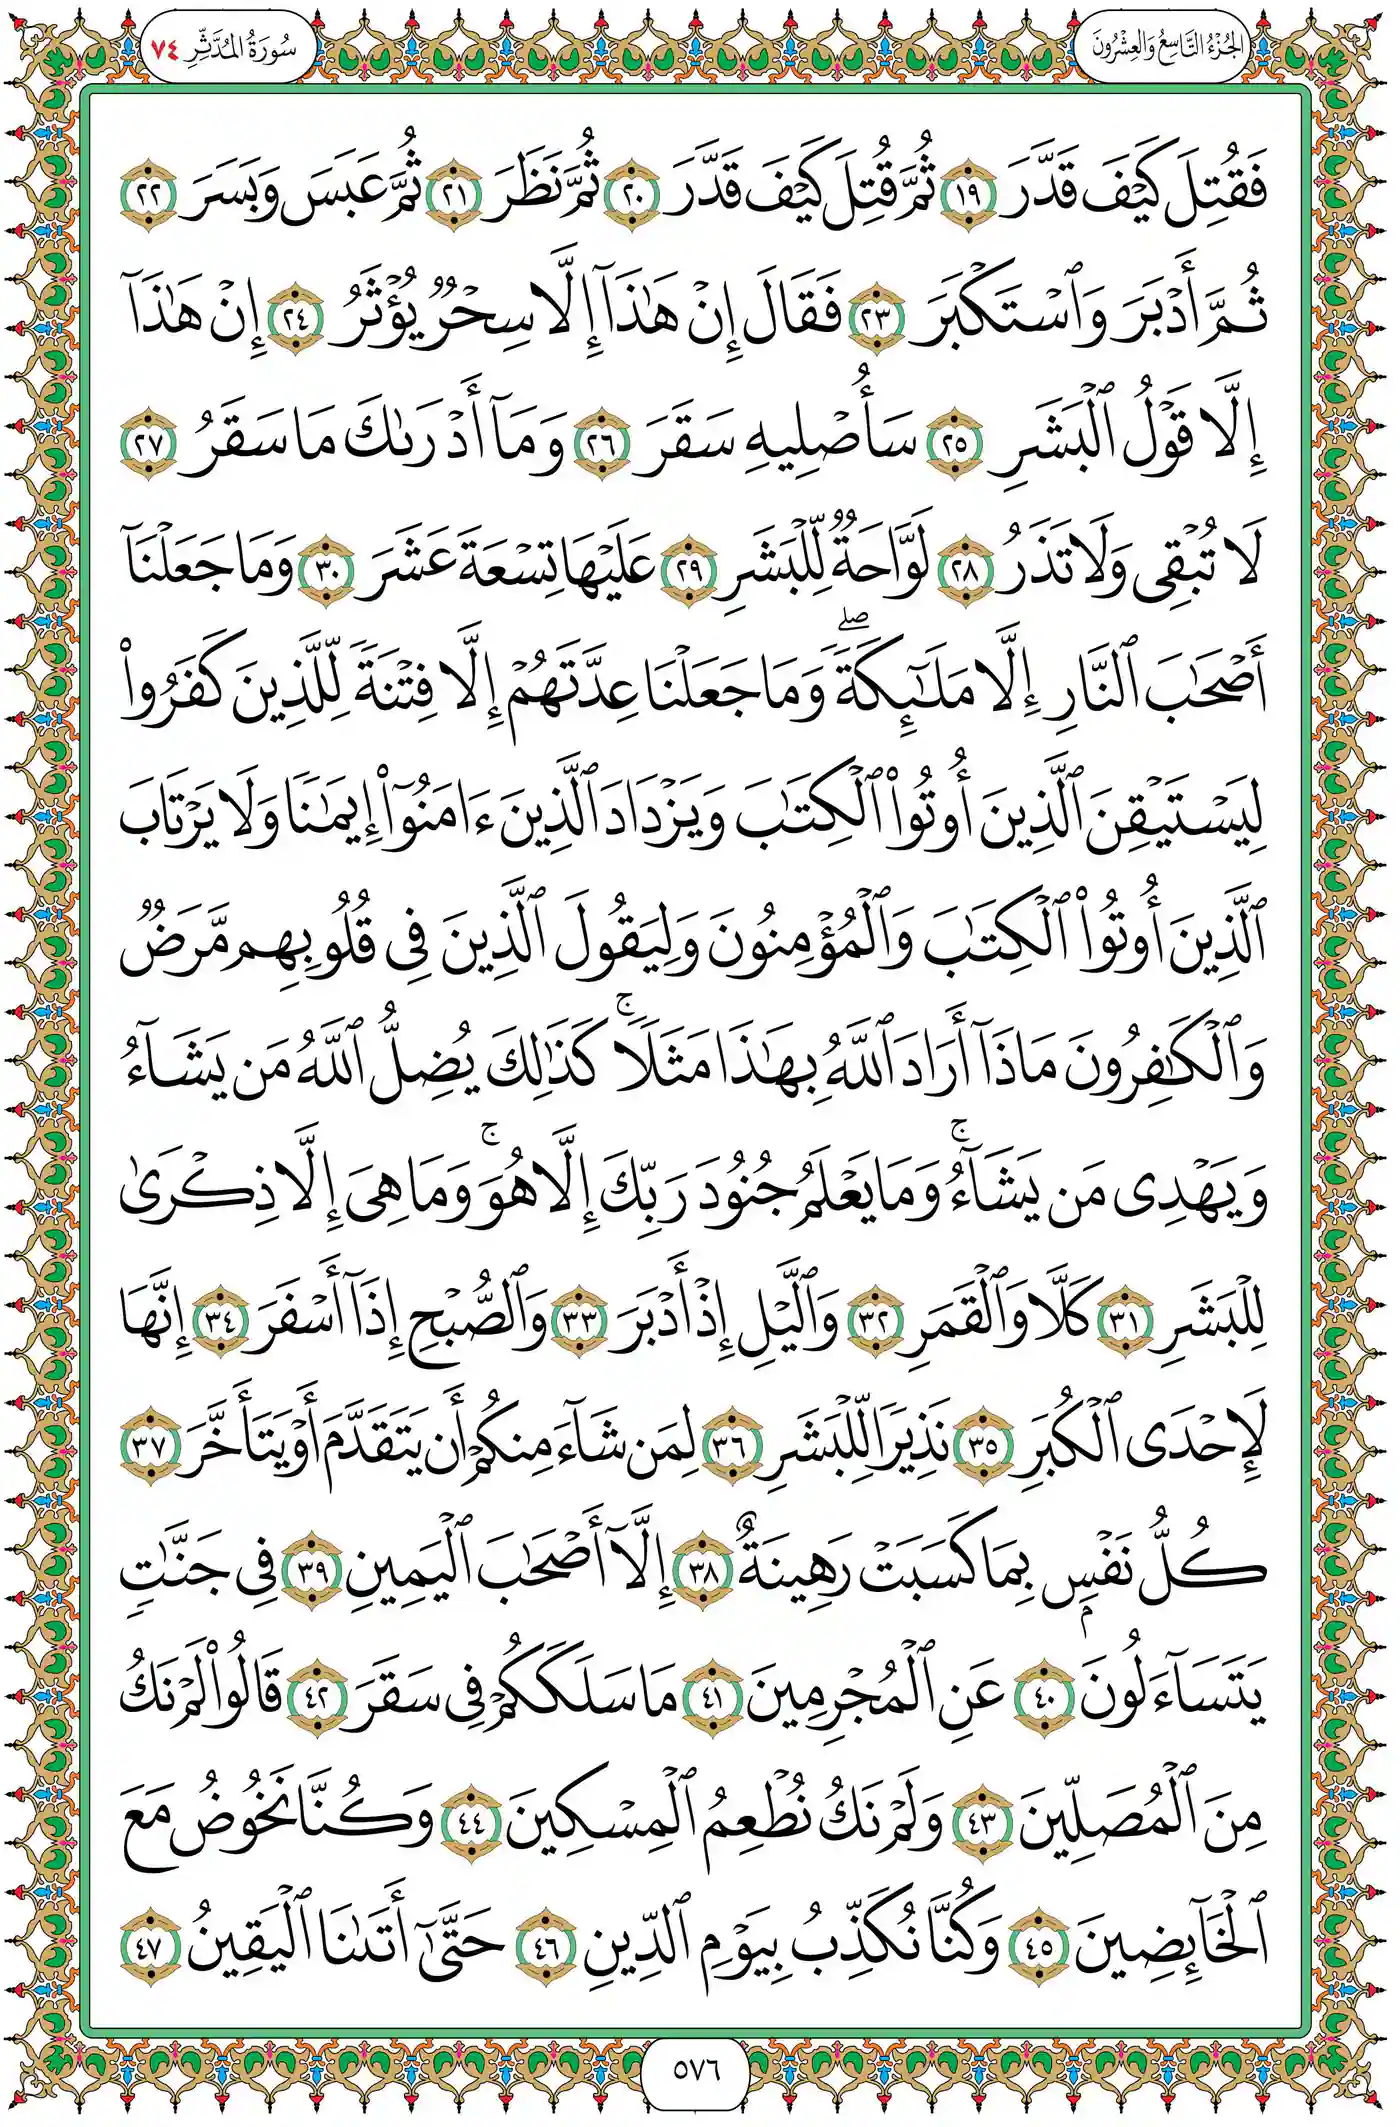 الجُزْءُ التَّاسِعُ وَالعِشْرُونَ
سُورَةُ المُدَّثِّرِ ٧٤
فَقُتِلَ كَيْفَ قَدَّرَ ١٩ ثُمَّ قُتِلَ كَيْفَ قَدَّرَ ٢٠ ثُمَّ نَظَرَ ٢١ ثُمَّ عَبَسَ وَبَسَرَ ٢٢
ثُمَّ أَدْبَرَ وَٱسْتَكْبَرَ ٢٣ فَقَالَ إِنْ هَٰذَآ إِلَّا سِحْرٌ يُؤْثَرُ ٢٤ إِنْ هَٰذَآ
إِلَّا قَوْلُ ٱلْبَشَرِ ٢٥ سَأُصْلِيهِ سَقَرَ ٢٦ وَمَآ أَدْرَىٰكَ مَا سَقَرُ ٢٧
لَا تُبْقِى وَلَا تَذَرُ ٢٨ لَوَّاحَةٌ لِّلْبَشَرِ ٢٩ عَلَيْهَا تِسْعَةَ عَشَرَ ٣٠ وَمَا جَعَلْنَآ
أَصْحَٰبَ ٱلنَّارِ إِلَّا مَلَٰٓئِكَةً ۖ وَمَا جَعَلْنَا عِدَّتَهُمْ إِلَّا فِتْنَةً لِّلَّذِينَ كَفَرُوا۟
لِيَسْتَيْقِنَ ٱلَّذِينَ أُوتُوا۟ ٱلْكِتَٰبَ وَيَزْدَادَ ٱلَّذِينَ ءَامَنُوٓا۟ إِيمَٰنًا وَلَا يَرْتَابَ
ٱلَّذِينَ أُوتُوا۟ ٱلْكِتَٰبَ وَٱلْمُؤْمِنُونَ وَلِيَقُولَ ٱلَّذِينَ فِى قُلُوبِهِم مَّرَضٌ
وَٱلْكَٰفِرُونَ مَاذَآ أَرَادَ ٱللَّهُ بِهَٰذَا مَثَلًا ۚ كَذَٰلِكَ يُضِلُّ ٱللَّهُ مَن يَشَآءُ
وَيَهْدِى مَن يَشَآءُ ۚ وَمَا يَعْلَمُ جُنُودَ رَبِّكَ إِلَّا هُوَ ۚ وَمَا هِىَ إِلَّا ذِكْرَىٰ
لِلْبَشَرِ ٣١ كَلَّا وَٱلْقَمَرِ ٣٢ وَٱلَّيْلِ إِذْ أَدْبَرَ ٣٣ وَٱلصُّبْحِ إِذَآ أَسْفَرَ ٣٤ إِنَّهَا
لَإِحْدَى ٱلْكُبَرِ ٣٥ نَذِيرًا لِّلْبَشَرِ ٣٦ لِمَن شَآءَ مِنكُمْ أَن يَتَقَدَّمَ أَوْ يَتَأَخَّرَ ٣٧
كُلُّ نَفْسٍۭ بِمَا كَسَبَتْ رَهِينَةٌ ٣٨ إِلَّآ أَصْحَٰبَ ٱلْيَمِينِ ٣٩ فِى جَنَّٰتٍ
يَتَسَآءَلُونَ ٤٠ عَنِ ٱلْمُجْرِمِينَ ٤١ مَا سَلَكَكُمْ فِى سَقَرَ ٤٢ قَالُوا۟ لَمْ نَكُ
مِنَ ٱلْمُصَلِّينَ ٤٣ وَلَمْ نَكُ نُطْعِمُ ٱلْمِسْكِينَ ٤٤ وَكُنَّا نَخُوضُ مَعَ
ٱلْخَآئِضِينَ ٤٥ وَكُنَّا نُكَذِّبُ بِيَوْمِ ٱلدِّينِ ٤٦ حَتَّىٰٓ أَتَىٰنَا ٱلْيَقِينُ ٤٧
٥٧٦